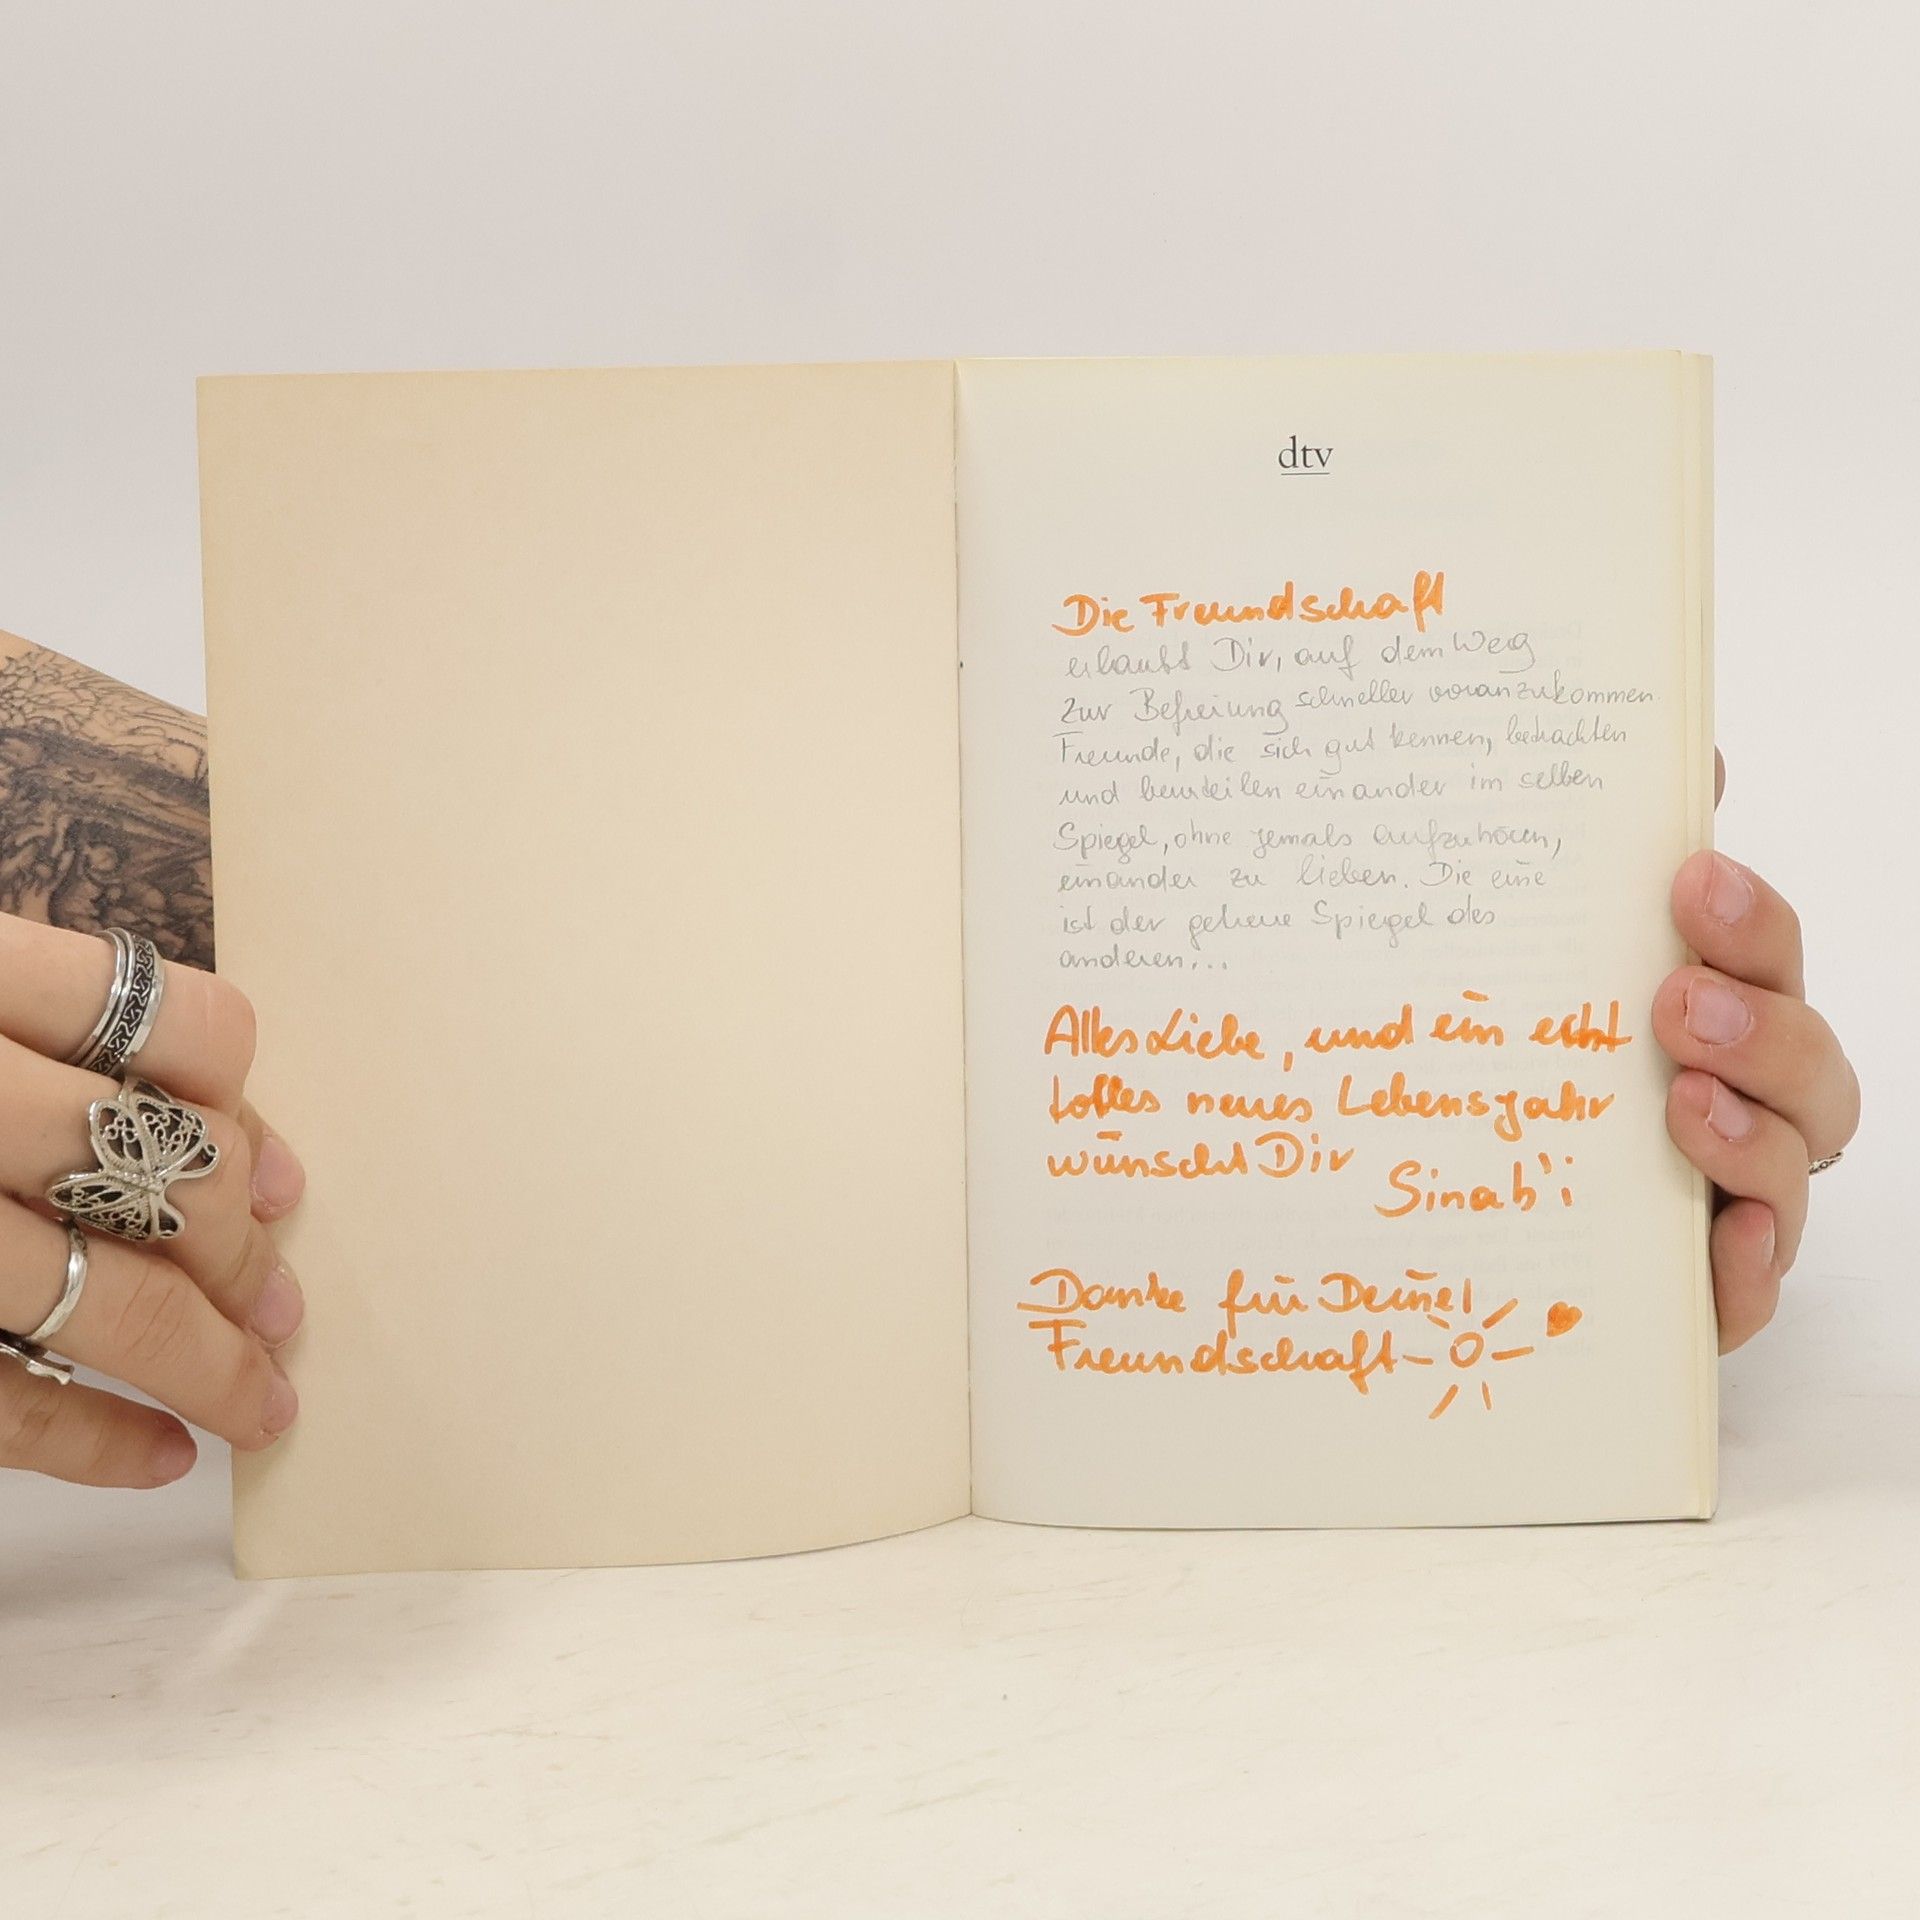 dtv
Die Freundschaft
erlaubt Dir, auf dem Weg
zur Befreiung schneller voranzukommen.
Freunde, die sich gut kennen, betrachten
und beurteilen einander im selben
Spiegel, ohne jemals aufzuhören,
einander zu lieben. Die eine
ist der geheue Spiegel des
anderen...
Alles Liebe, und ein echt
tolles neues Lebensjahr
wünscht Dir
Sinab'i
Danke für Deine
Freundschaft